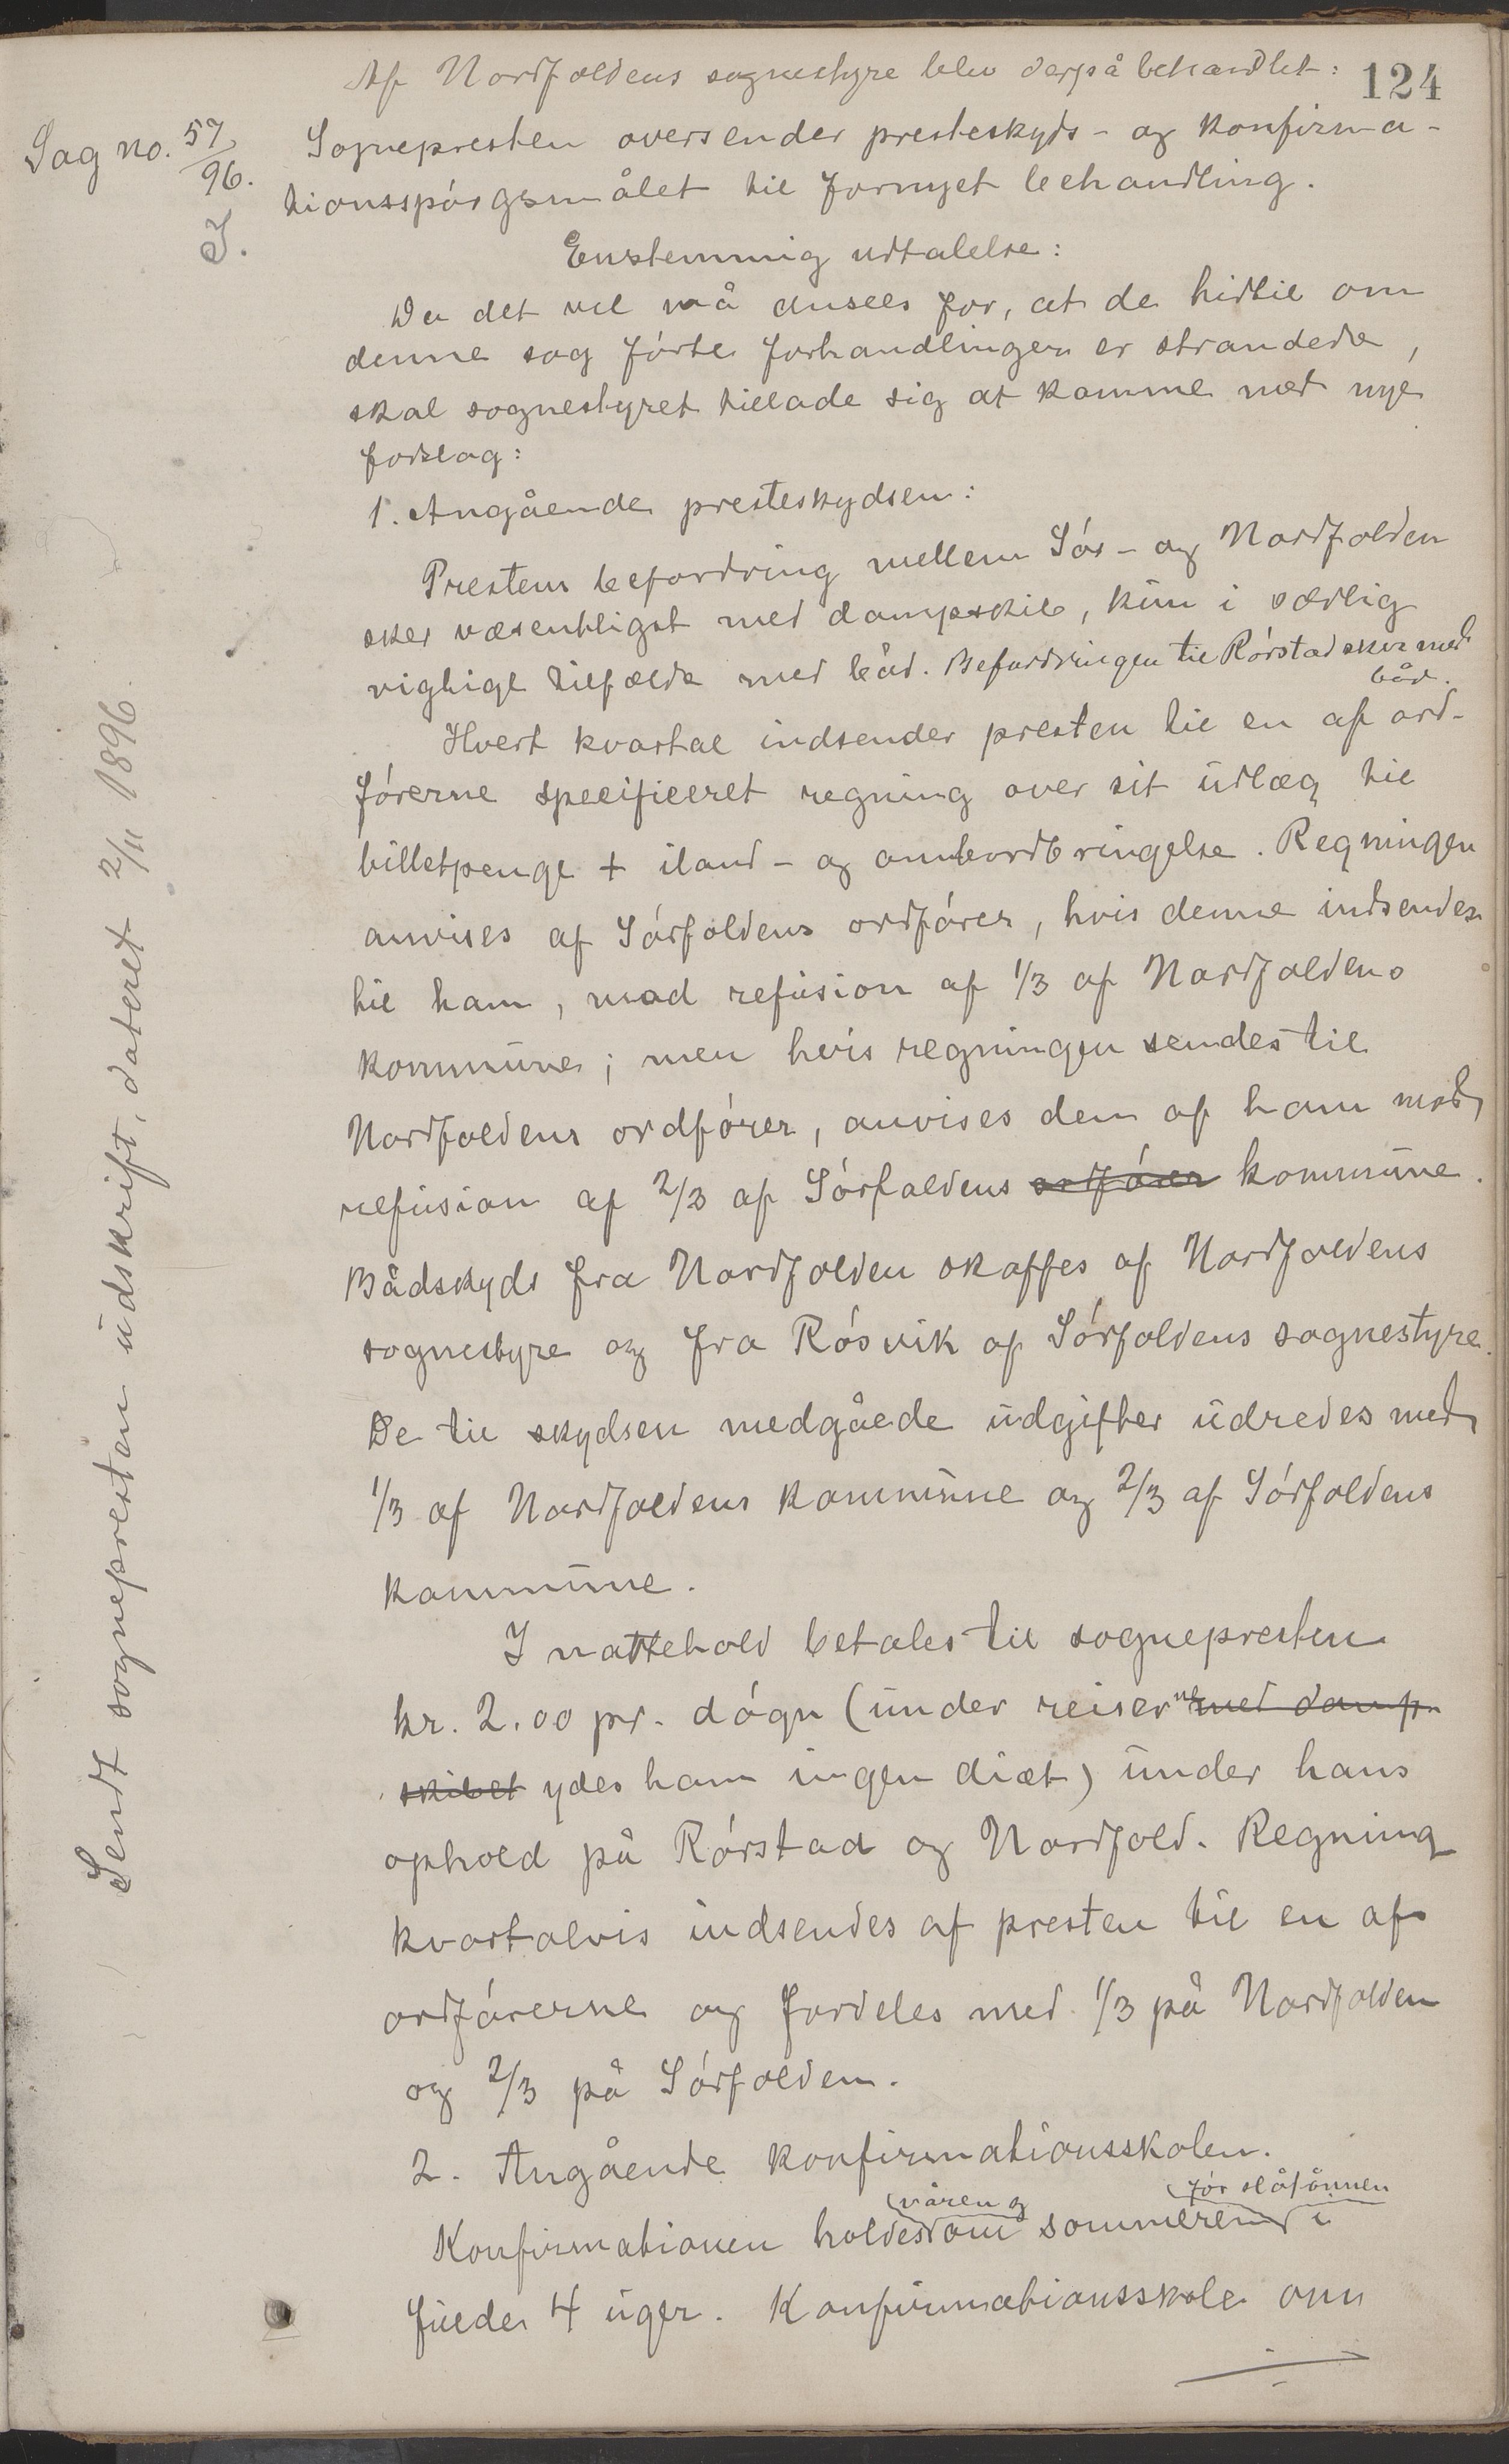 Af Nordfoldens sognestyre blev derpå behandlet:
124
Sag no. 57/96.
I.
Sognepresten oversender presteskyds- og konfirma-
tionsspórgsmålet til fornyet behandling.
Enstemmig udtalelse:
Da det vel må ansees for, at de hidtil om
denne sag fórte forhandlinger er strandede,
skal sognestyret tillade sig at komme med nye
forslag:
1. Angående presteskydsen:
Prestens befordring mellem Sór- og Nordfolden
sker væsentligst med dampskib, kun i særlig
vigtige tilfælde med båd. Befordringen til Rórstad sker med
båd.
Hvert kvartal indsender presten til en af ord-
fórerne specificeret regning over sit udlæg til
billetpenge + iland- og ombordbringelse. Regningen
anvises af Sórfoldens ordfórer, hvis denne indsendes
til ham, mod refusion af 1/3 af Nordfoldens
kommune; men hvis regningen sendes til
Nordfoldens ordfórer, anvises den af ham mod
refusion af 2/3 af Sórfoldens ordfórer kommune.
Bådskyds fra Nordfolden skaffes af Nordfoldens
sognestyre og fra Rósvik af Sórfoldens sognestyre.
De til skydsen medgåede udgifter udredes med
1/3 af Nordfoldens kommune og 2/3 af Sórfoldens
kommune.
I nattehold betales til sognepresten
kr. 2.00 pr. dógn (under reiserne med damp-
skibet ydes ham ingen diæt) under hans
ophold på Rórstad og Nordfold. Regning
kvartalvis indsendes af presten til en af
ordfórerne og fordeles med 1/3 på Nordfolden
og 2/3 på Sórfolden.
2. Angående konfirmationsskolen.
våren og
fór slåtónnen
Konfirmationen holdes om sommeren i
fulde 4 uger. Konfirmationsskole om
Sendt sognepresten udskrift, dateret 2/11 1896.